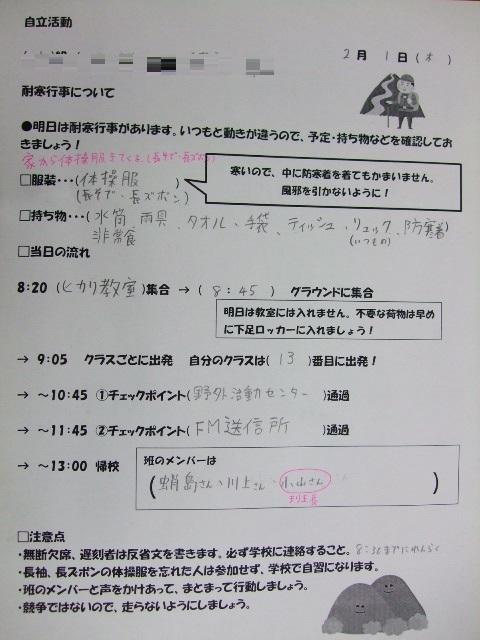 自立活動
2月 1日(木)
耐寒行事について
●明日は耐寒行事があります。いつもと動きが違うので、予定・持ち物などを確認してお
きましょう！
家から体操服できてよい(長そで・長ズボン)
□服装・・・(体操服
(長そで・長ズボン)
寒いので、中に防寒着を着てもかまいません。
風邪を引かないように！
□持ち物・・・(水筒、雨具、タオル、手袋、ティッシュ、リュック、防寒着)
非常食
(いつもの)
□当日の流れ
8:20 (ヒカリ教室)集合 → ( 8:45 ) グラウンドに集合
明日は教室には入れません。不要な荷物は早め
に下足ロッカーに入れましょう！
→ 9:05 クラスごとに出発 自分のクラスは( 13 )番目に出発！
→ ～10:45 ①チェックポイント(野外活動センター )通過
→ ～11:45 ②チェックポイント(FM送信所 )通過
→ ～13:00 帰校
班のメンバーは
(蛸島さん、川上さん、小山さん )
□注意点
・無断欠席、遅刻者は反省文を書きます。必ず学校に連絡すること。8:30までにれんらく
・長袖、長ズボンの体操服を忘れた人は参加せず、学校で自習になります。
・班のメンバーと声をかけあって、まとまって行動しましょう。
・競争ではないので、走らないようにしましょう。